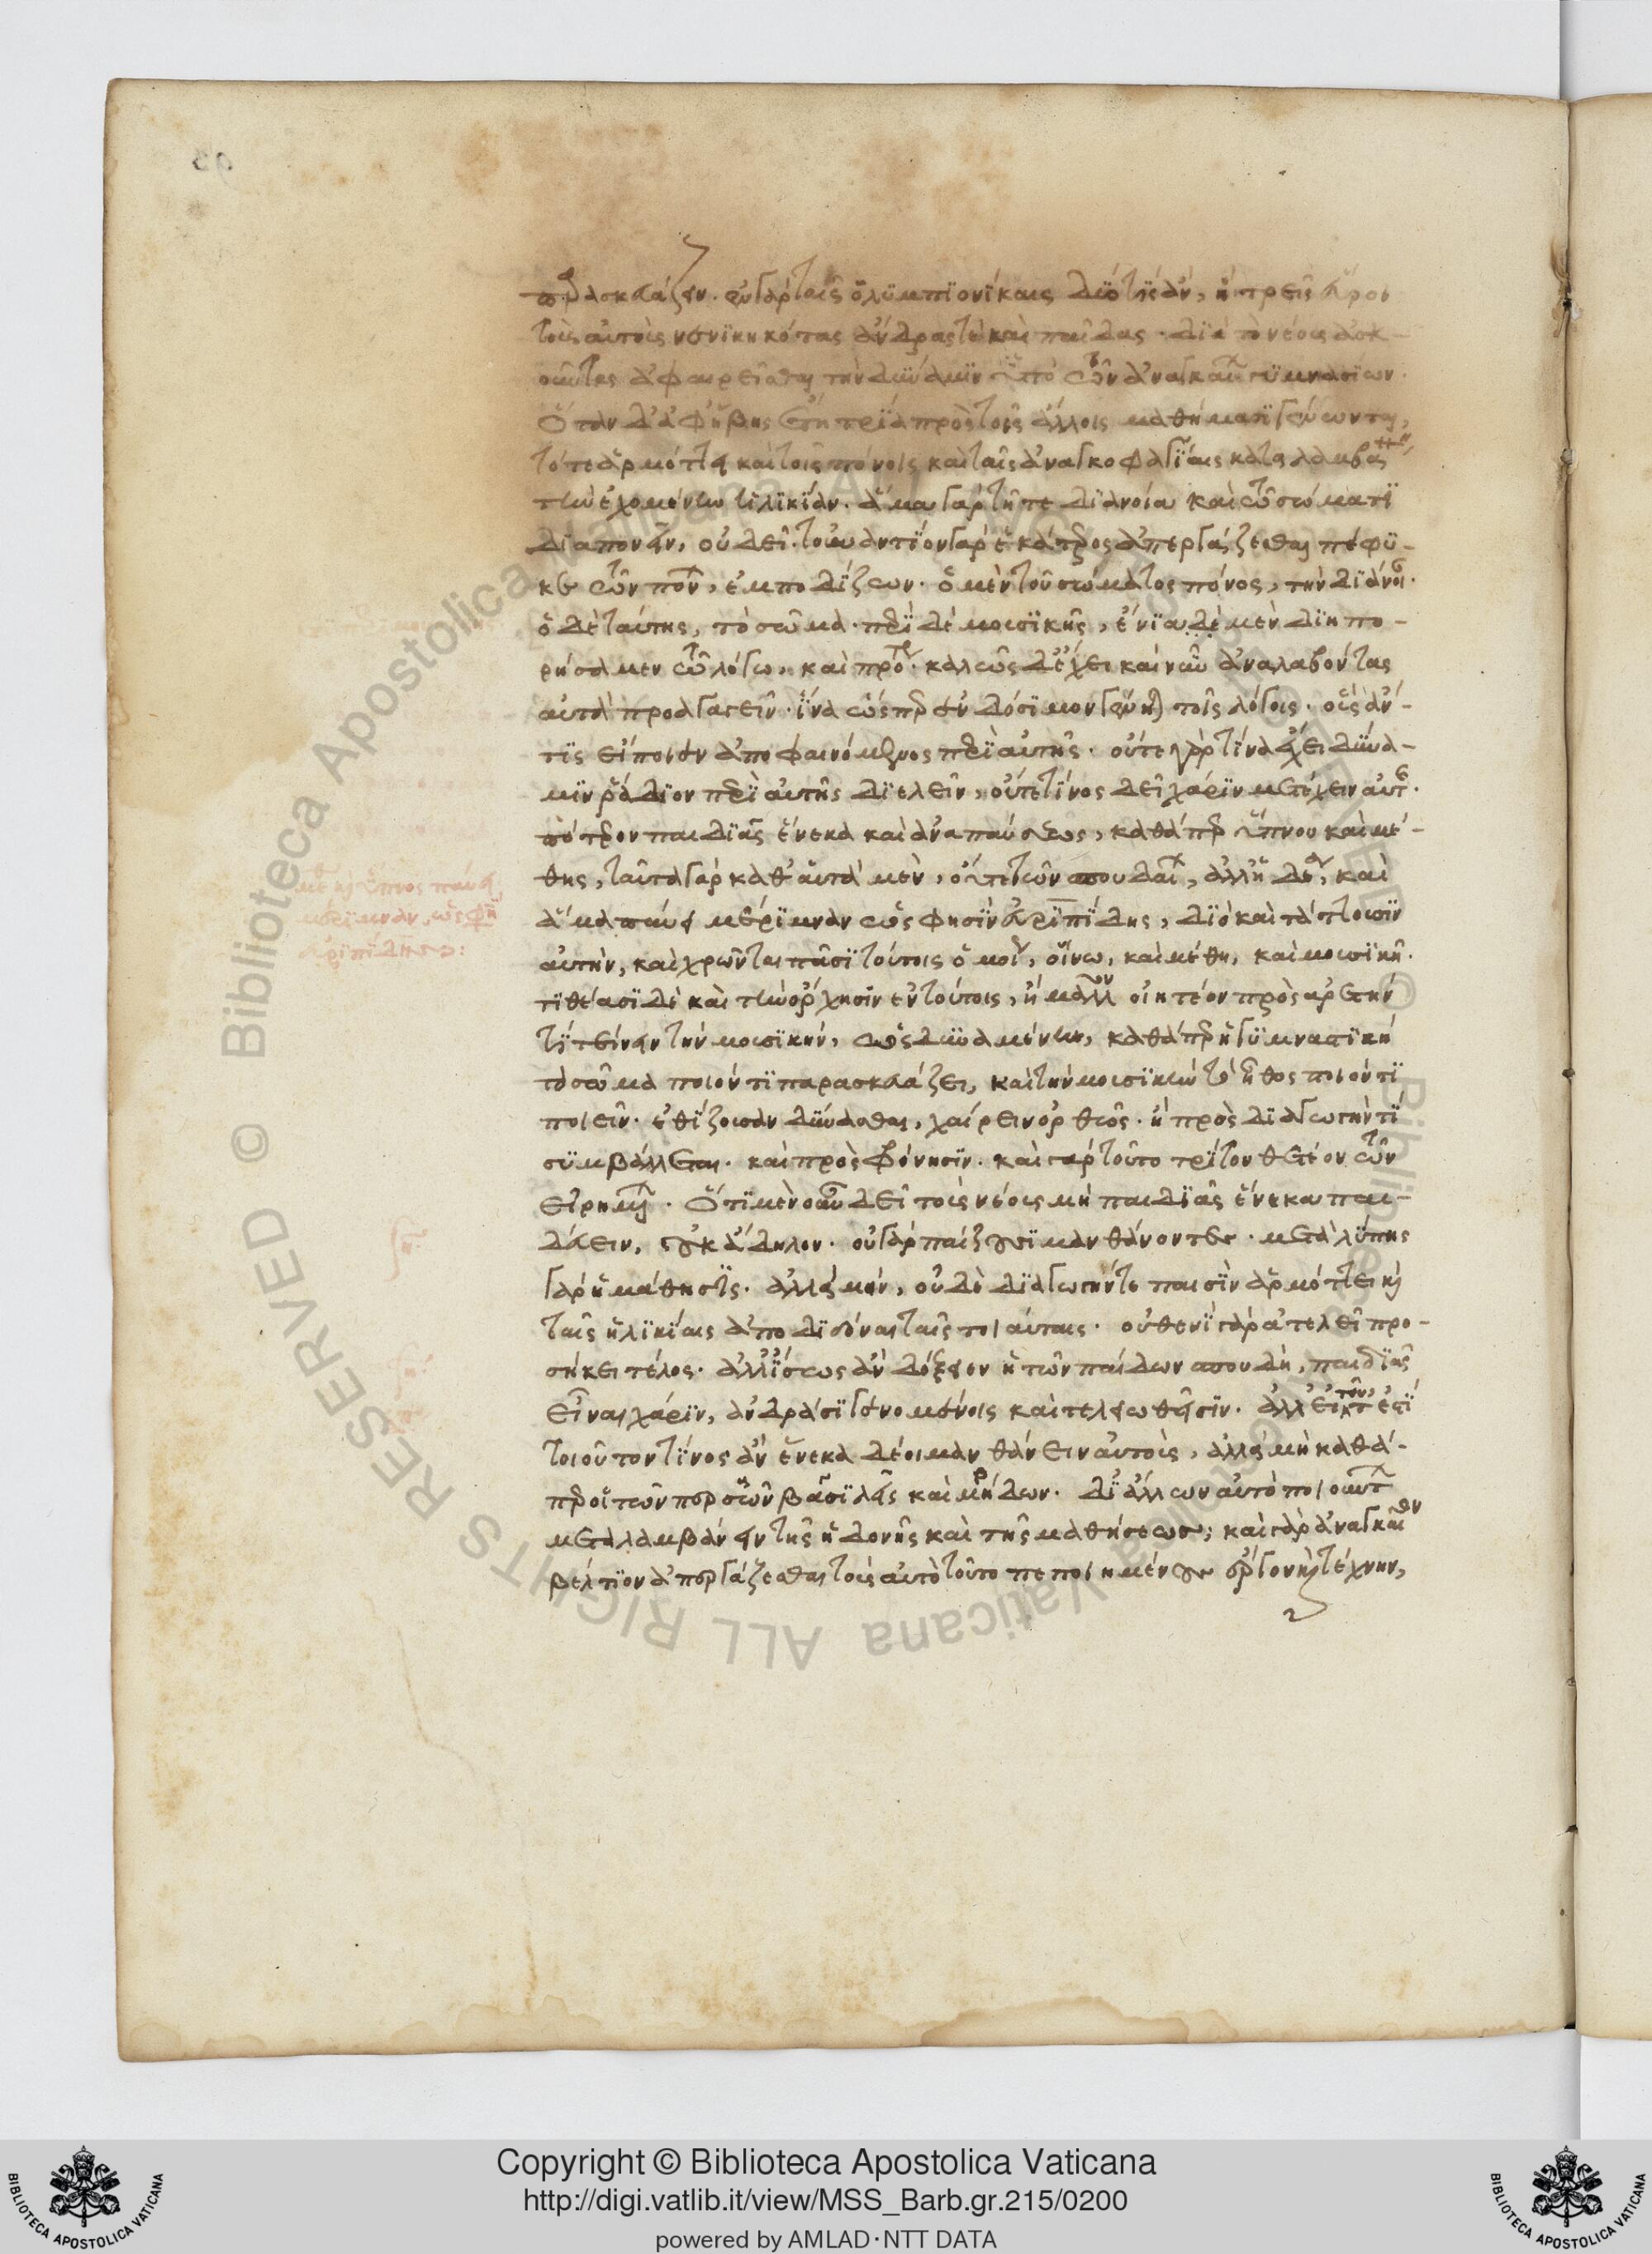 παρασκευάζειν. ἐν γὰρ τοῖς ὀλυμπιονίκαις δύο τὶς ἂν, ἢ τρεῖς εὕροι
τοὺς αὐτοὺς νενικηκότας ἄνδρας τὲ καὶ παῖδας. διὰ τὸ νέους ἀσκ-
οῦντας ἀφαιρεῖσθαι τὴν δύναμιν ὑπὸ τῶν ἀναγκαίων γυμνασίων.
Ὅταν δ' ἀφ' ἥβης ἔτη τρία πρὸς τοῖς ἄλλοις μαθήμασι γένωνται,
τότε ἁρμόττει καὶ τοῖς πόνοις καὶ ταῖς ἀναγκοφαγίαις καταλαμβάνειν
τὴν ἐχομένην ἡλικίαν. ἅμα γὰρ τῆ τε διανοία καὶ τῶ σώματι
διαπονεῖν, οὐ δεῖ. τοὐναντίον γὰρ ἑκάτερος ἀπεργάζεσθαι πέφυ-
κε τῶν πόνων, ἐμποδίζων. ὁ μὲν τοῦ σώματος πόνος, τὴν διάνοιαν.
ὁ δὲ ταύτης, τὸ σῶμα. περὶ δὲ μουσικῆς, ἔνια δὲ μὲν διηπο-
ρήσαμεν τῶ λόγω, καὶ πρότερον. καλῶς δ' ἔχει καὶ νῦν ἀναλαβόντας
αὐτὰ προαγαγεῖν. ἵνα ὥσπερ ἐνδόσιμον γένηται τοῖς λόγοις. οὓς ἄν
τις εἴποιεν ἀποφαινόμενος περὶ αὐτῆς. οὔτε γὰρ τίνα ἔχει δύνα-
μιν ῥάδιον περὶ αὐτῆς διελεῖν, οὔτε τίνος δεῖ χάριν μετέχειν αὐτῆς.
πότερον παιδιᾶς ἕνεκα καὶ ἀναπαύσεως, καθάπερ ὕπνου καὶ μέ-
θης, ταῦτα γὰρ καθ' αὑτὰ μὲν, οὔτε τῶν σπουδαίων, ἀλλ' ἡδέα, καὶ
ἅμα παύει μέριμναν ὥς φησὶν εὐριπίδης, διὸ καὶ τάττουσιν
αὐτὴν, καὶ χρῶνται πᾶσι τούτοις ὁμοίως, οἴνω, καὶ μέθη, καὶ μουσικῆ.
τιθέασι δὲ καὶ τὴν ὄρχησιν ἐν τούτοις, ἢ μᾶλλον οἰητέον πρὸς ἀρετήν
τι τείνειν τὴν μουσικήν, ὡς δυναμένην, καθάπερ ἡ γυμναστικὴ
τὸ σῶμα ποιόν τι παρασκευάζει, καὶ τὴν μουσικὴν τὸ ἦθος ποιόν τι
ποιεῖν. ἐθίζουσαν δύνασθαι, χαίρειν ὀρθῶς. ἢ πρὸς διαγωγὴν τί
συμβάλλεται. καὶ πρὸς φρόνησιν. καὶ γὰρ τοῦτο τρίτον θετέον τῶν
εἰρημένων. Ὅτι μὲν οὖν δεῖ τοὺς νέους μὴ παιδιᾶς ἕνεκα παι-
δεύειν, οὐκ ἄδηλον. οὐ γὰρ παίζουσι μανθάνοντες. μετὰ λύπης
γὰρ ἡ μάθησις. ἀλλὰ μὴν, οὐδὲ διαγωγήν τε παισὶν ἁρμόττει καὶ
ταῖς ἡλικίαις ἀποδιδόναι ταῖς τοιαύταις. οὐθενὶ γὰρ ἀτελεῖ προ-
σήκει τέλος. ἀλλ' ἴσως ἂν δόξειεν ἡ τῶν παίδων σπουδὴ, παιδιᾶς
εἶναι χάριν, ἀνδράσι γενομένοις καὶ τελειωθεῖσιν. ἀλλ' εἰ τοῦτ' ἐστὶ
τοιοῦτον τίνος ἂν ἕνεκα δέοι μανθάνειν αὐτοὺς, ἀλλὰ μὴ καθά-
περ οἱ τῶν περσῶν βασιλεῖς καὶ μήδων. δι' ἄλλων αὐτὸ ποιούντων
μεταλαμβάνειν τῆς ἡδονῆς καὶ τῆς μαθήσεως; καὶ γὰρ ἀναγκαῖον
βέλτιον ἀπεργάζεσθαι τοὺς αὐτὸ τοῦτο πεποιημένους ἔργον καὶ τέχνην,
μέθη ὕπνος παύει
μέριμναν, ὥς φη
εὐριπίδης: